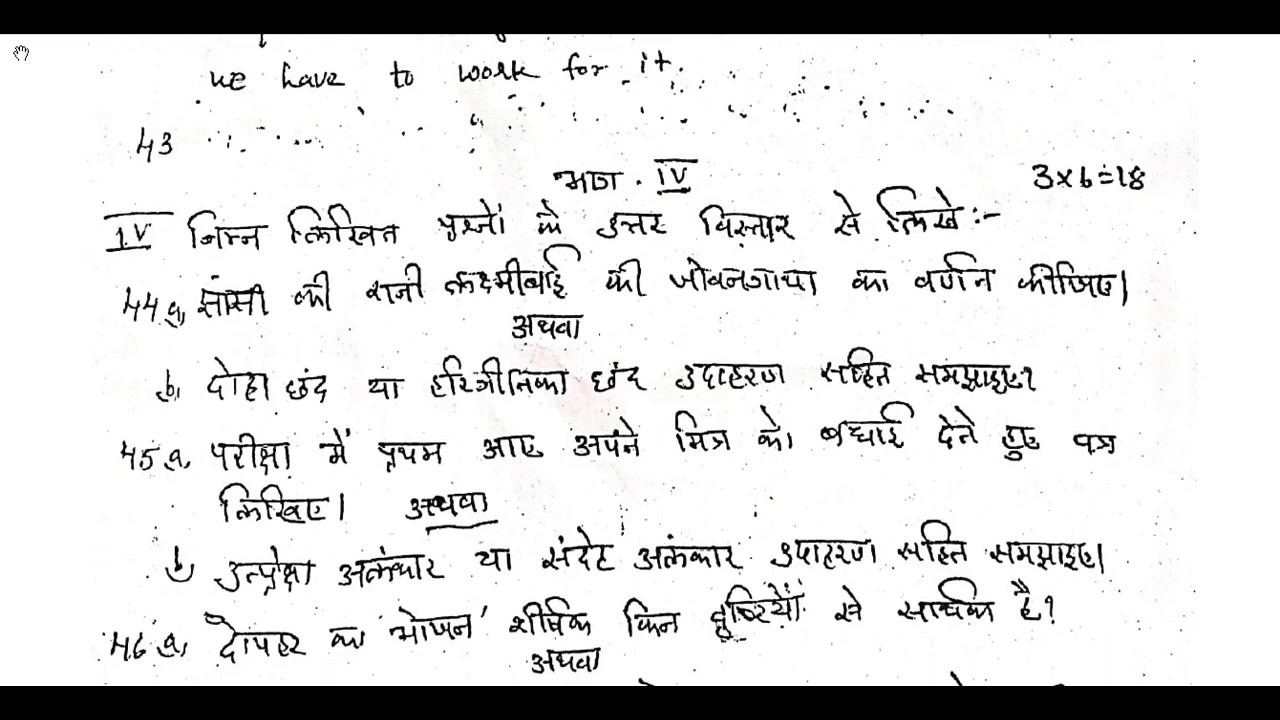 we have to work for it.
43
भाग . IV 3x6=18
IV निम्न लिखित प्रश्नों के उत्तर विस्तार से लिखे:-
44 a, झांसी की रानी लक्ष्मीबाई की जीवनगाथा का वर्णन कीजिए।
अथवा
b, दोहा छंद या हरिगीतिका छंद उदाहरण सहित समझाइए?
45 a, परीक्षा में प्रथम आए अपने मित्र को बधाई देते हुए पत्र
लिखिए। अथवा
b, उत्प्रेक्षा अलंकार या संदेह अलंकार उदाहरण सहित समझाइए।
46 a, 'दोपहर का भोजन' शीर्षक किन दृष्टियों से सार्थक है?
अथवा